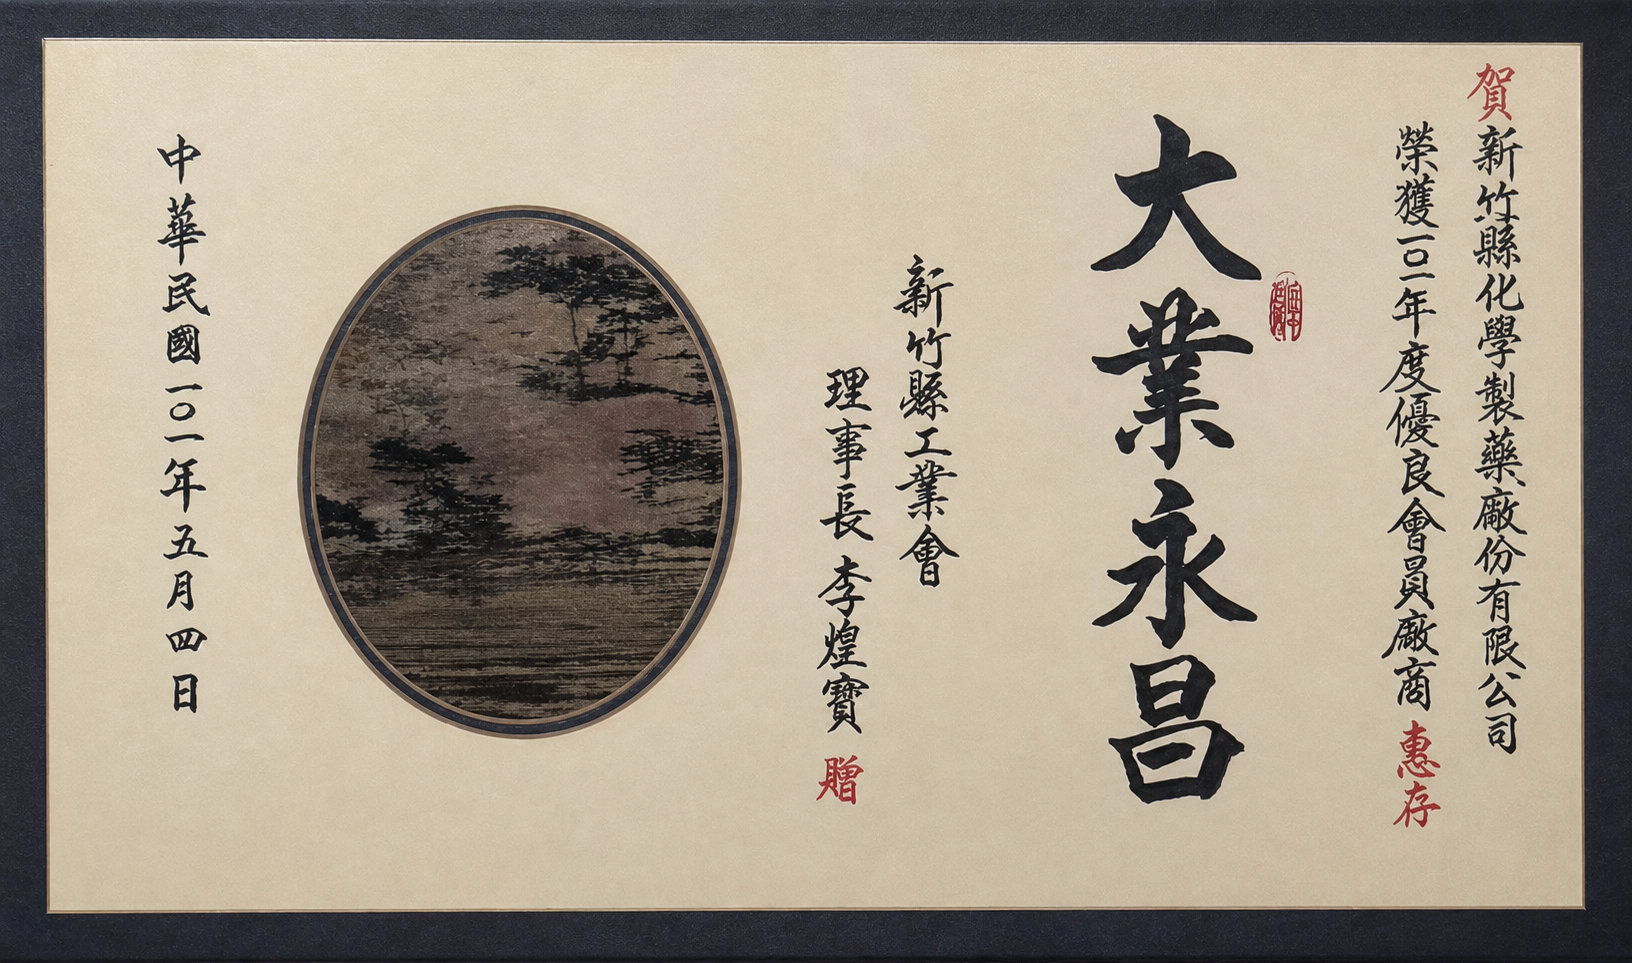 賀新竹縣化學製藥廠份有限公司
榮獲一〇一年度優良會員廠商惠存
大業永昌
新竹縣工業會
理事長李煌寶贈
中華民國一〇一年五月四日